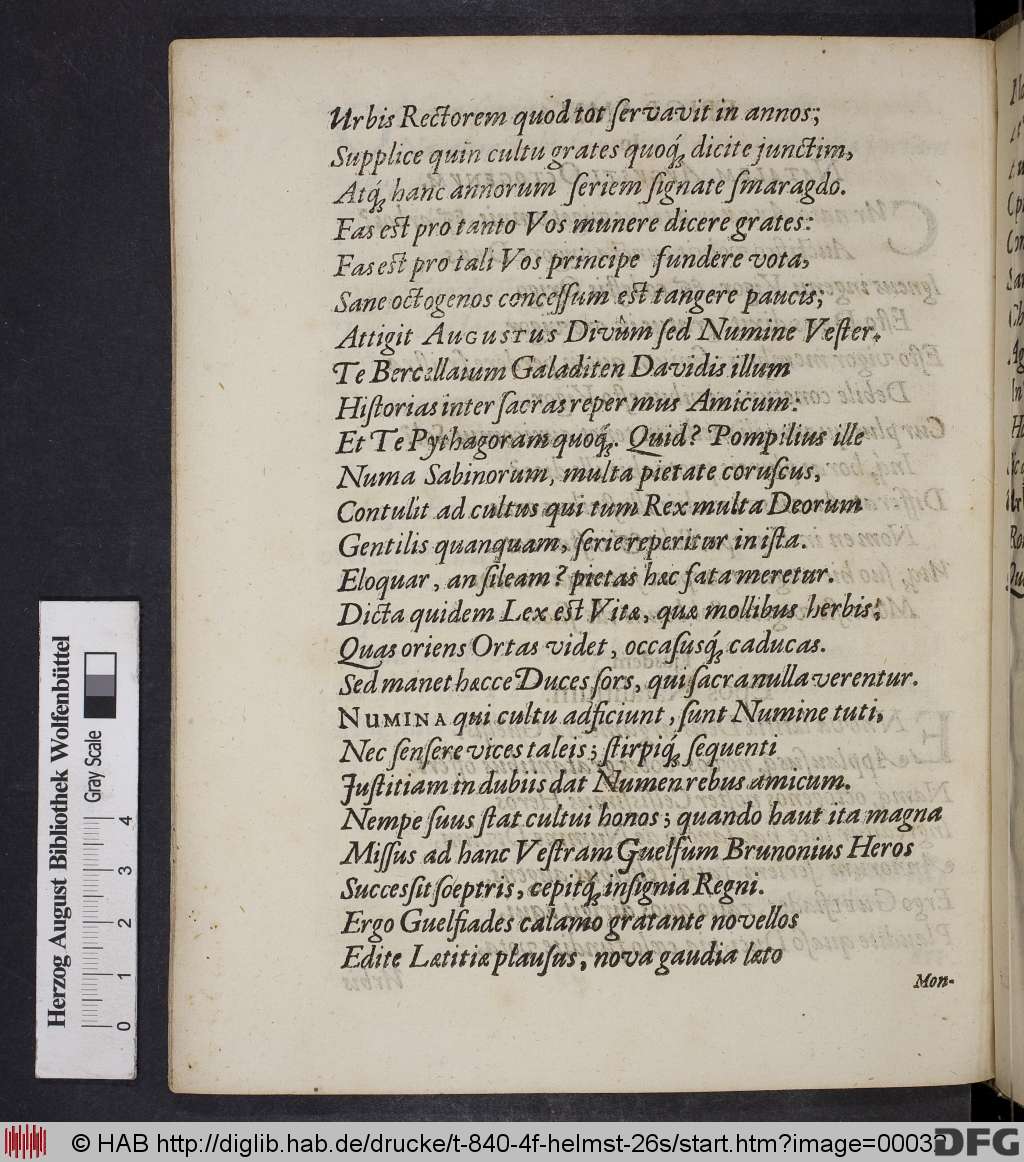 Urbis Rectorem quod tot ſervavit in annos;
Supplice quin cultu grates quoq́; dicite junctim,
Atq́; hanc annorum ſeriem ſignate ſmaragdo.
Fas est pro tanto Vos munere dicere grates:
Fas est pro tali Vos principe fundere vota,
Sane octogenos conceſſum est tangere paucis;
Attigit AUGUSTUS Divûm ſed Numine Veſter.
Te Bercellaium Galaditen Davidis illum
Hiſtorias inter ſacras reper mus Amicum:
Et Te Pythagoram quoq́;. Quid? Pompilius ille
Numa Sabinorum, multa pietate coruſcus,
Contulit ad cultus qui tum Rex multa Deorum
Gentilis quanquam, ſerie reperitur in iſta.
Eloquar, an ſileam? pietas hæc fata meretur.
Dicta quidem Lex est Vitæ, quæ mollibus herbis;
Quas oriens Ortas videt, occaſusq́; caducas.
Sed manet hæcce Duces ſors, qui ſacra nulla verentur.
NUMINA qui cultu adficiunt, ſunt Numine tuti,
Nec ſenſere vices taleis; ſtirpiq́; ſequenti
Juſtitiam in dubiis dat Numen rebus amicum.
Nempe ſuus ſtat cultui honos; quando haut ita magna
Miſſus ad hanc Veſtram Guelfûm Brunonius Heros
Succeſsit ſceptris, cepitq́; inſignia Regni.
Ergo Guelfiades calamo gratante novellos
Edite Lætitiæ plauſus, nova gaudia læto
Mon-
Herzog August Bibliothek Wolfenbüttel
Gray Scale
0 1 2 3 4
© HAB http://diglib.hab.de/drucke/t-840-4f-helmst-26s/start.htm?image=00032
DFG